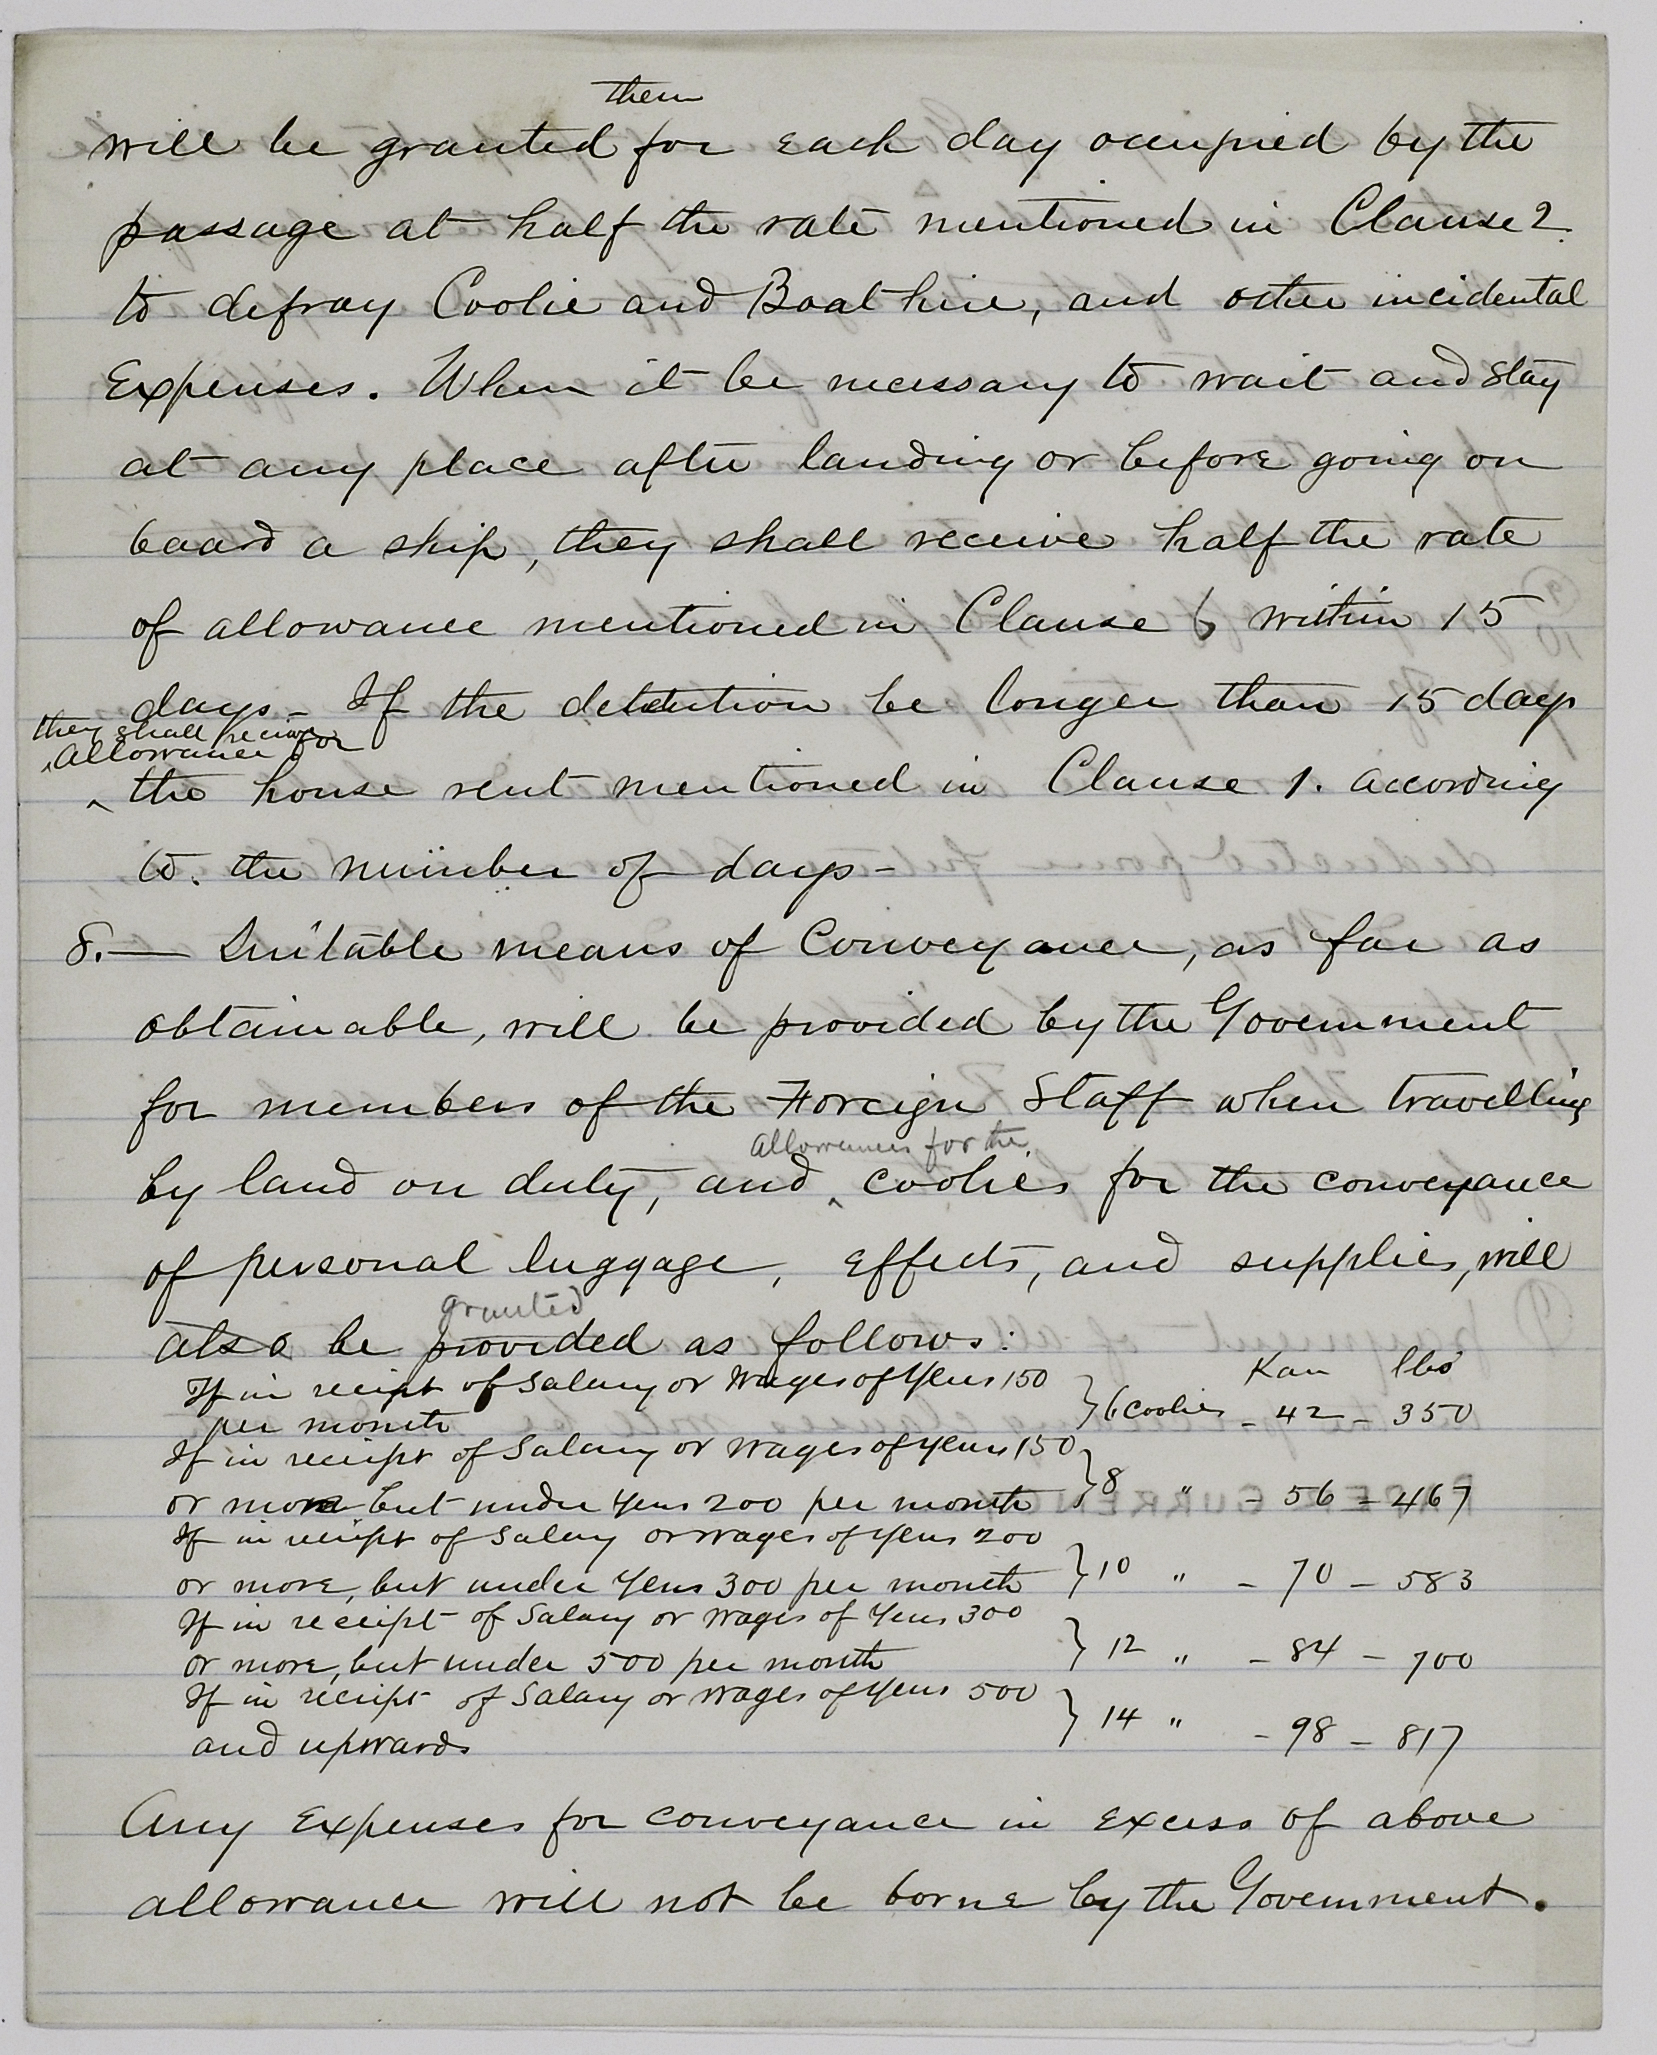 them
will be granted for each day occupied by the
passage at half the rate mentioned in Clause 2
to defray Coolie and Boat hire, and other incidental
Expenses. When it be necessary to wait and stay
at any place after landing or before going on
board a ship, they shall receive half the rate
of allowance mentioned in Clause 6 within 15
days - If the detention be longer than 15 days
they shall receive
allowance for
the house rent mentioned in Clause 1. according
to. the number of days -
8. — Suitable means of Conveyance, as far as
obtainable, will be provided by the Government
for members of the Foreign Staff when travelling
allowances for the
by land on duty, and coolies for the conveyance
of personal luggage, effects, and supplies, will
granted
also be provided as follows:
Kan lbs
If in receipt of Salary or Wages of Yens 150
per month } 6 Coolies - 42 - 350
If in receipt of Salary or Wages of Yens 150
or more but under Yens 200 per month } 8 " - 56 - 467
If in receipt of Salary or Wages of Yens 200
or more, but under Yens 300 per month } 10 " - 70 - 583
If in receipt of Salary or Wages of Yens 300
or more, but under 500 per month } 12 " - 84 - 700
If in receipt of Salary or Wages of Yens 500
and upwards } 14 " - 98 - 817
Any Expenses for conveyance in excess of above
allowance will not be borne by the Government.